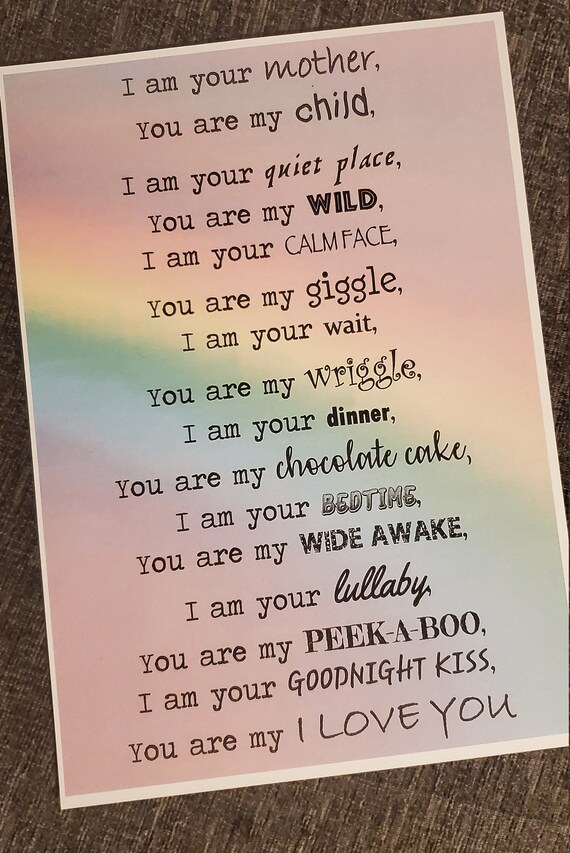 I am your mother,
You are my child,
I am your quiet place,
You are my WILD,
I am your CALM FACE,
You are my giggle,
I am your wait,
You are my wriggle,
I am your dinner,
You are my chocolate cake,
I am your BEDTIME,
You are my WIDE AWAKE,
I am your lullaby,
You are my PEEK-A-BOO,
I am your GOODNIGHT KISS,
You are my I LOVE YOU